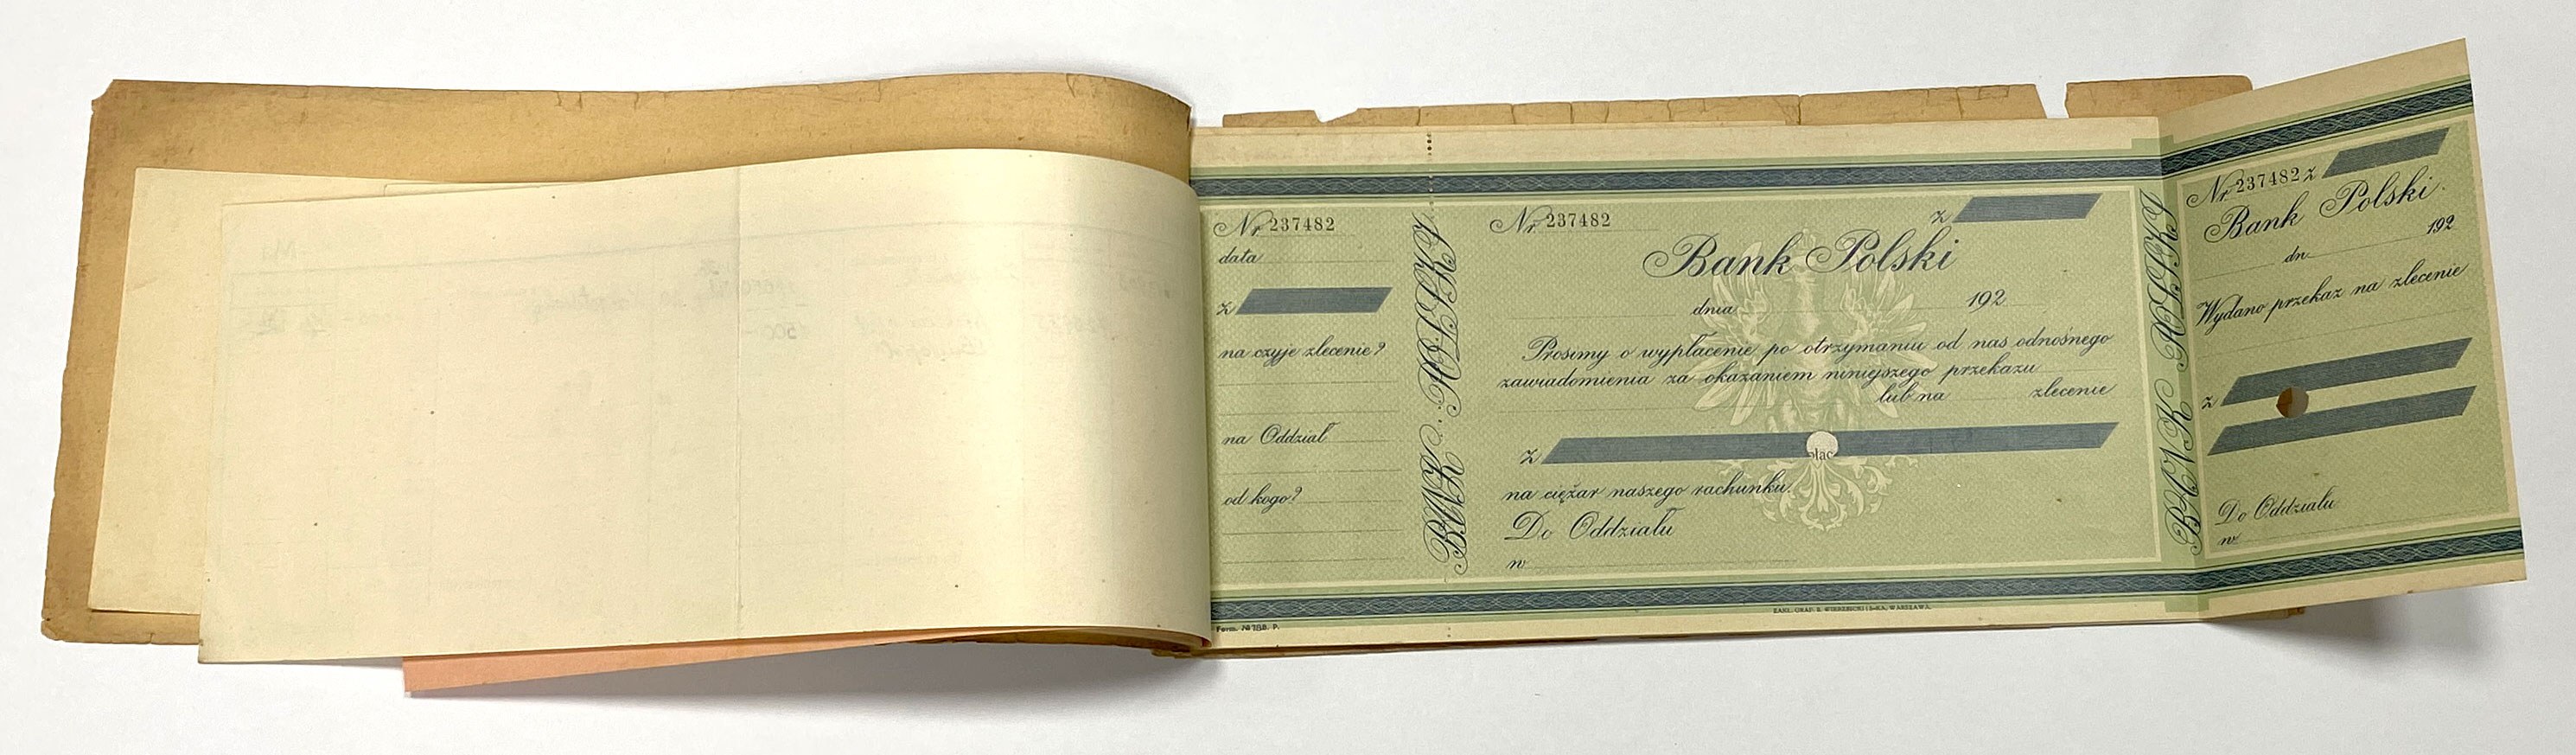 Nr 237482
data
z
na czyje zlecenie?
na Oddział
od kogo?
Form. № 78 B. P.
BANK POLSKI
Nr 237482 z
Bank Polski
dnia 192
Prosimy o wypłacenie po otrzymaniu od nas odnośnego
zawiadomienia za okazaniem niniejszego przekazu
lub na zlecenie
z
płac
na ciężar naszego rachunku.
Do Oddziału
w
ZAKŁ. GRAF. B. WIERZBICKI I S-KA, WARSZAWA.
BANK POLSKI
Nr 237482 z
Bank Polski.
dn 192
Wydano przekaz na zlecenie
z
Do Oddziału
w